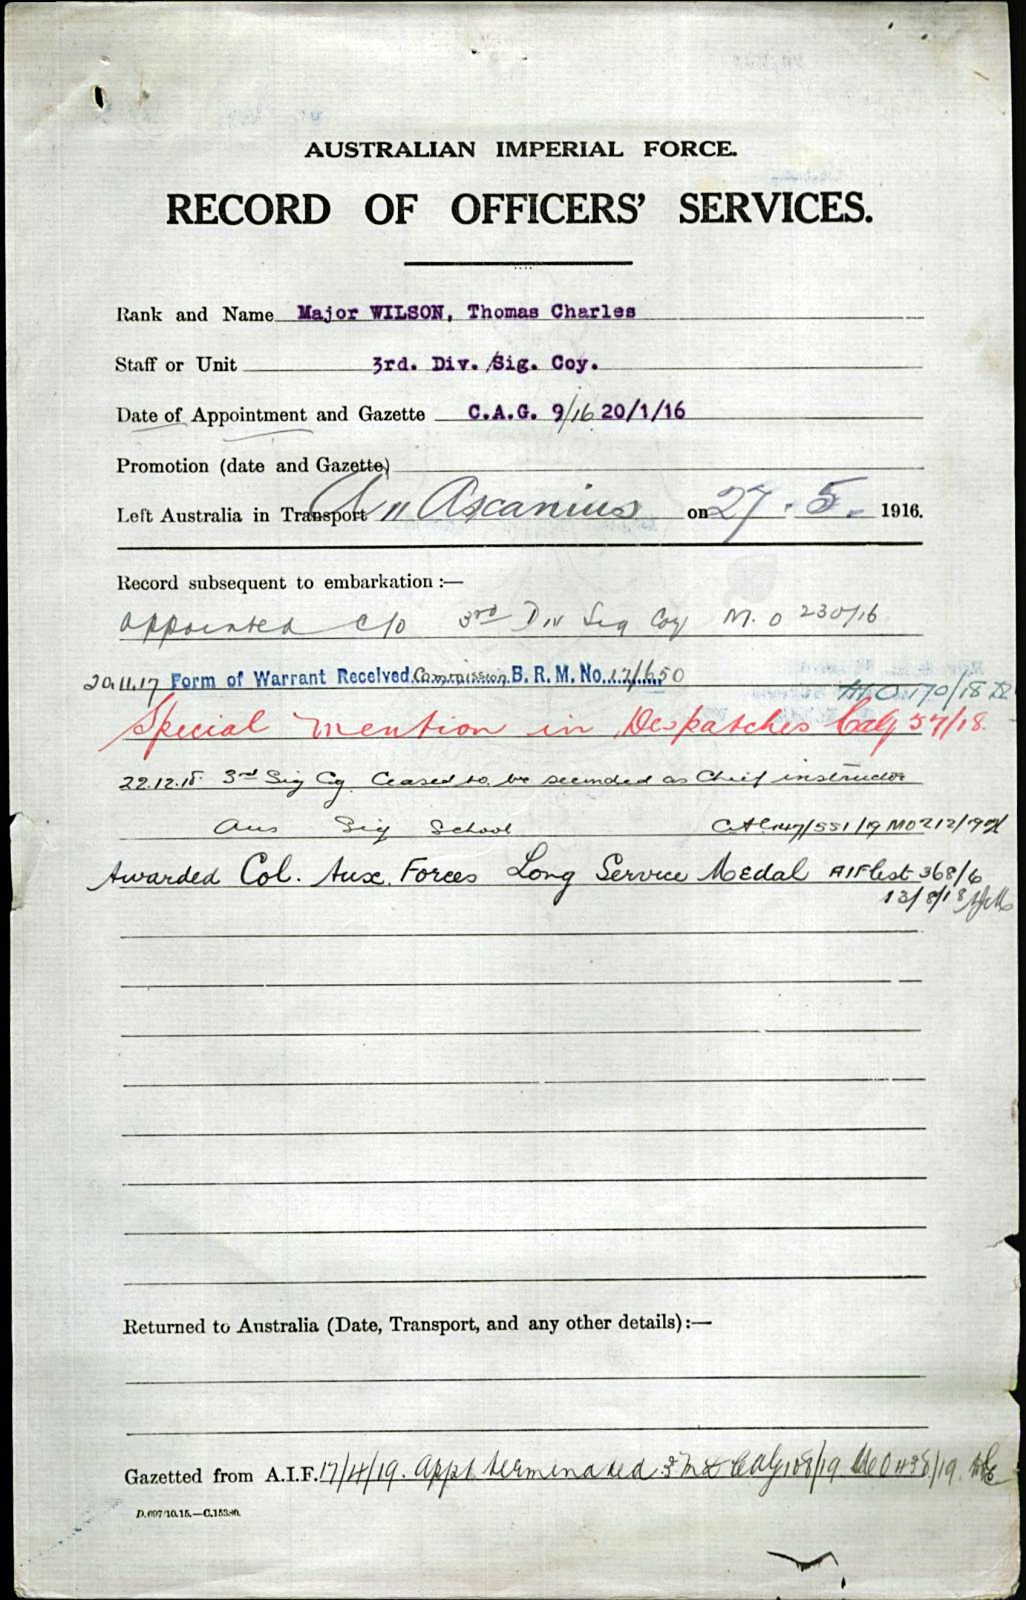 AUSTRALIAN IMPERIAL FORCE.
RECORD OF OFFICERS' SERVICES.
Rank and Name Major WILSON, Thomas Charles
Staff or Unit 3rd. Div. Sig. Coy.
Date of Appointment and Gazette C.A.G. 9/16 20/1/16
Promotion (date and Gazette)
Left Australia in Transport A 11 Ascanius on 27 . 5 . 1916.
Record subsequent to embarkation :—
Appointed C/o 3rd Div Sig Coy M.O 230/16
20.11.17 Form of Warrant Received Commission B. R. M. No. 17/650
M.O 170/18
Special Mention in Despatches CAG 57/18.
22.12.18 3rd Sig Cy Ceased to be seconded as Chief instructor
Aus Sig School CAG 147/551/19 MO 212/19
Awarded Col. Aux. Forces Long Service Medal AIF List 368/6
13/8/18
Returned to Australia (Date, Transport, and any other details) :—
Gazetted from A.I.F. 17/4/19. Appt terminated 3 MD CAG 108/19 MO 438/19
D.697/10.15.—C.15380.